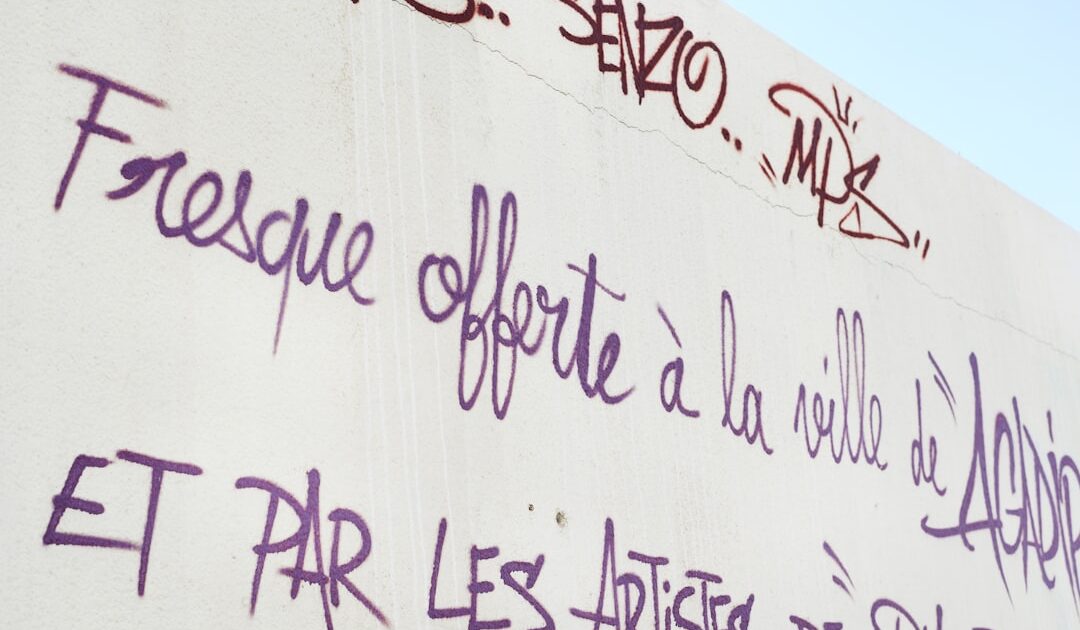 SENZO.. MPS..
Fresque offerte à la ville de "AGADIR
ET PAR LES ARTISTES DE